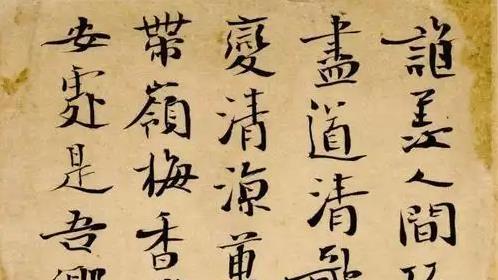 誰羨人間
盡道清歌
變清涼萬
帶嶺梅香
安處是吾鄉